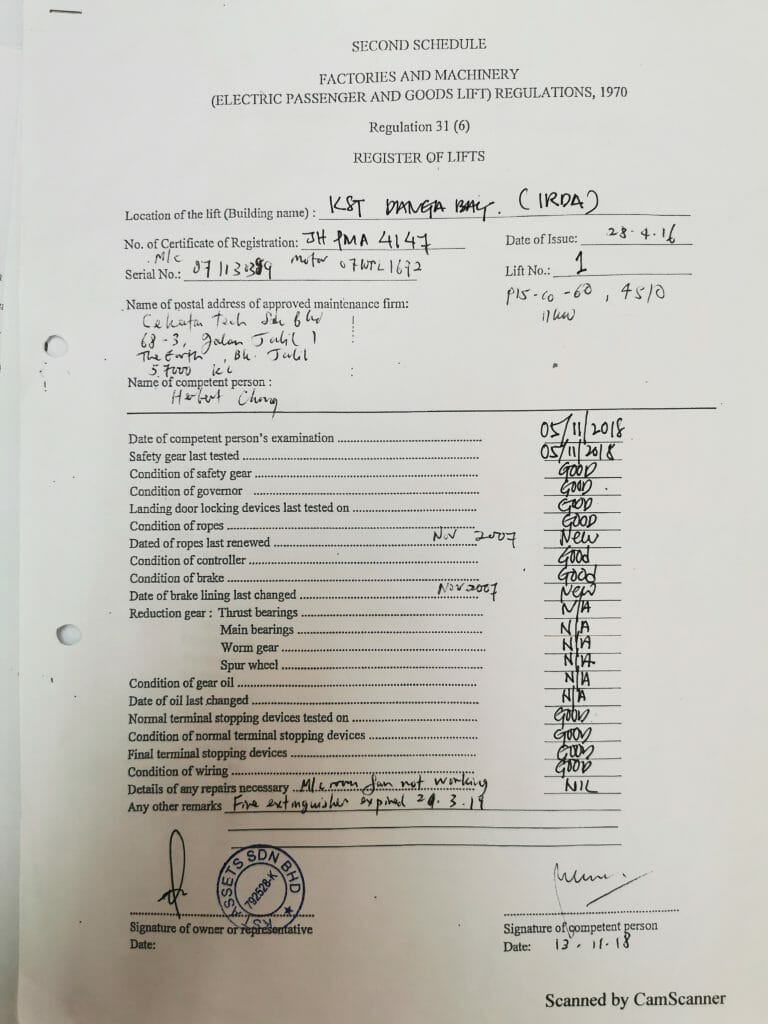 SECOND SCHEDULE
FACTORIES AND MACHINERY
(ELECTRIC PASSENGER AND GOODS LIFT) REGULATIONS, 1970
Regulation 31 (6)
REGISTER OF LIFTS
Location of the lift (Building name) : KST DANGA BAY. (IRDA)
No. of Certificate of Registration: JH PMA 4147 Date of Issue: 28.4.16
M/C motor
Serial No.: Lift No.: 1
P15-CO-60, 4510
11kw
Name of postal address of approved maintenance firm:
Cekatan Tech Sdn Bhd
68-3, Jalan Jalil 1
The Earth, Bk. Jalil
57000 KL
Name of competent person :
Herbert Chong
Date of competent person's examination 05/11/2018
Safety gear last tested 05/11/2018
Condition of safety gear GOOD
Condition of governor GOOD
Landing door locking devices last tested on GOOD
Condition of ropes GOOD
Dated of ropes last renewed Nov 2007 New
Condition of controller Good
Condition of brake Good
Date of brake lining last changed Nov 2007 New
Reduction gear : Thrust bearings N/A
Main bearings N/A
Worm gear N/A
Spur wheel N/A
Condition of gear oil N/A
Date of oil last changed N/A
Normal terminal stopping devices tested on GOOD
Condition of normal terminal stopping devices GOOD
Final terminal stopping devices GOOD
Condition of wiring GOOD
Details of any repairs necessary M/c room fan not working NIL
Any other remarks Fire extinguisher expired
KST ASSETS SDN BHD
792528-K
Signature of owner or representative
Date:
Signature of competent person
Date: 13.11.18
Scanned by CamScanner